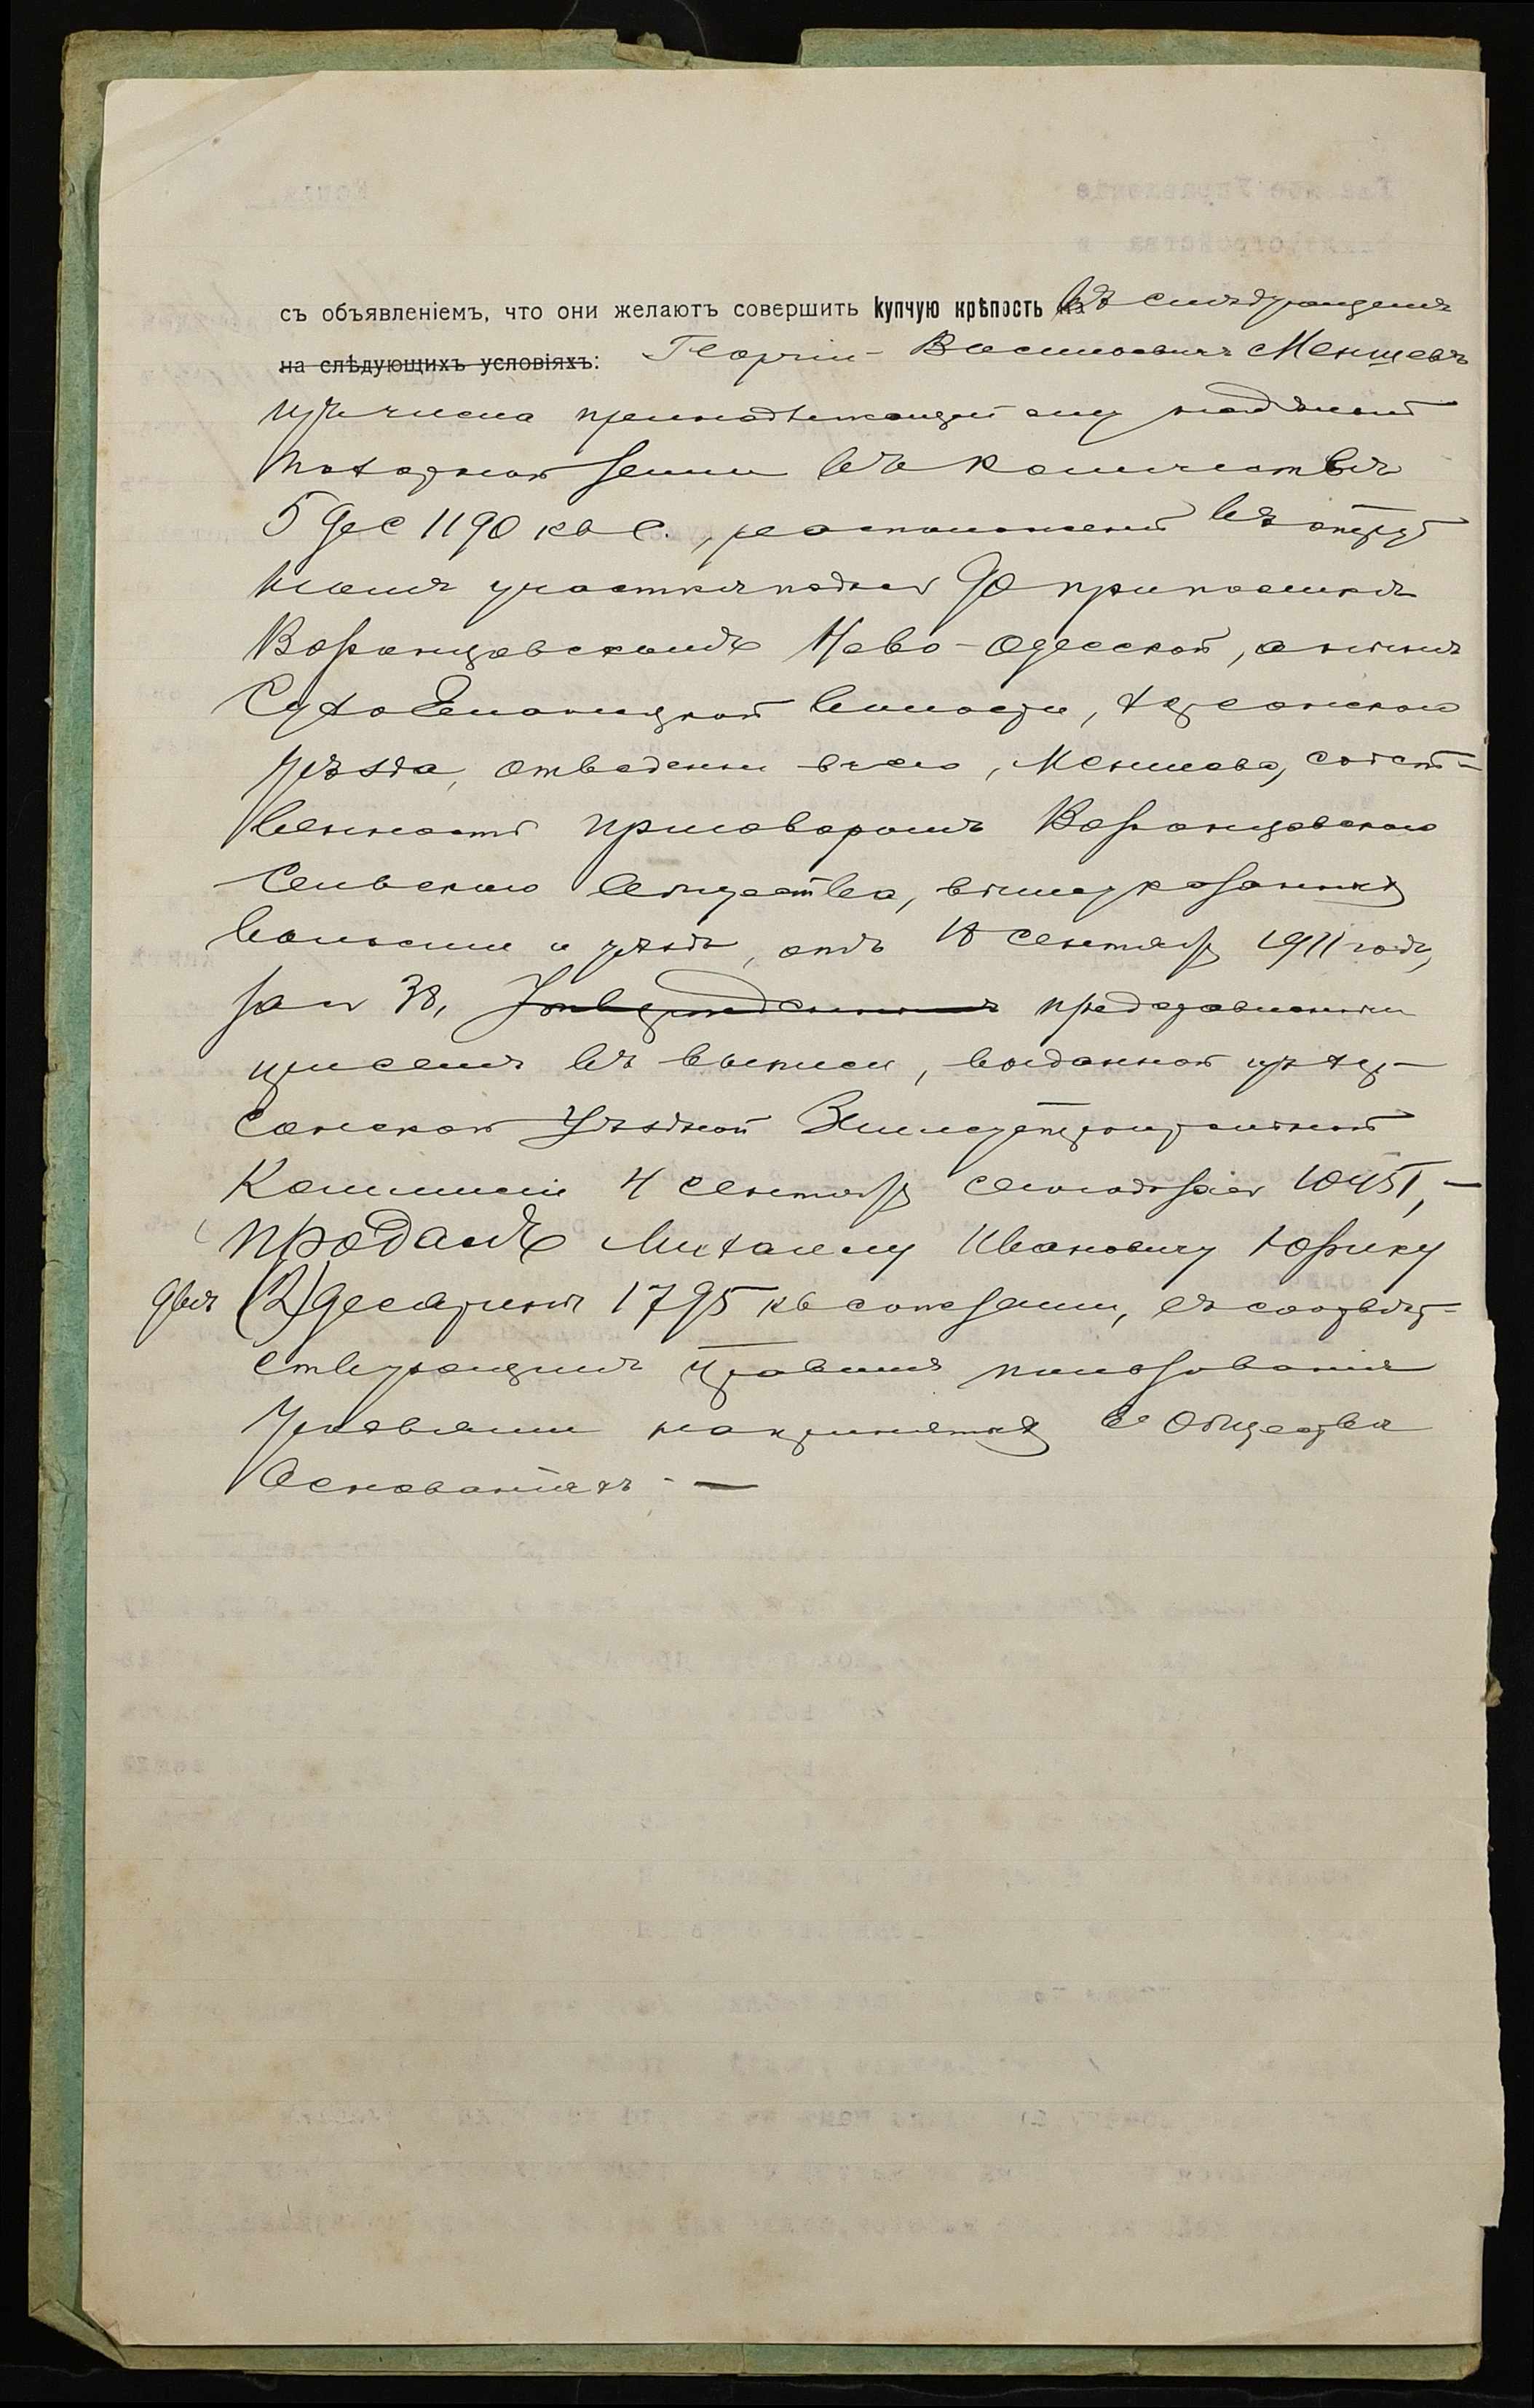 съ объявленіемъ, что они желаютъ совершить купчую крѣпость въ слѣдующемъ
на слѣдующихъ условіяхъ: Георгій Васильевичъ Меншевъ
изъ числа принадлежащей ему надѣльной
пахотной земли въ количествѣ
5 дес 1190 кв с., расположенной въ отруб
номъ участкѣ подъ № 90 при поселкѣ
Воронцовскомъ Ново-Одесской, а нынѣ
Сухо Еланецкой волости, Херсонскаго
уѣзда, отведенной в его, Меншева, собст-
венность приговоромъ Воронцовскаго
Сельскаго Общества, вышеуказанныхъ
волости и уѣзда, отъ 18 сентября 1911 года,
за № 38, представленнымъ
при семъ въ выписи, выданной изъ Хер-
сонской Уѣздной Землеустроительной
Коммиссіи 4 сентября сего года за № 10451,-
продалъ Михаилу Ивановичу Юзику
двѣ (2) десятины 1795 кв сажъ земли, съ соотвѣт-
ствующимъ правомъ пользованія
угодьями на принятыхъ въ Обществѣ
основаніяхъ. —